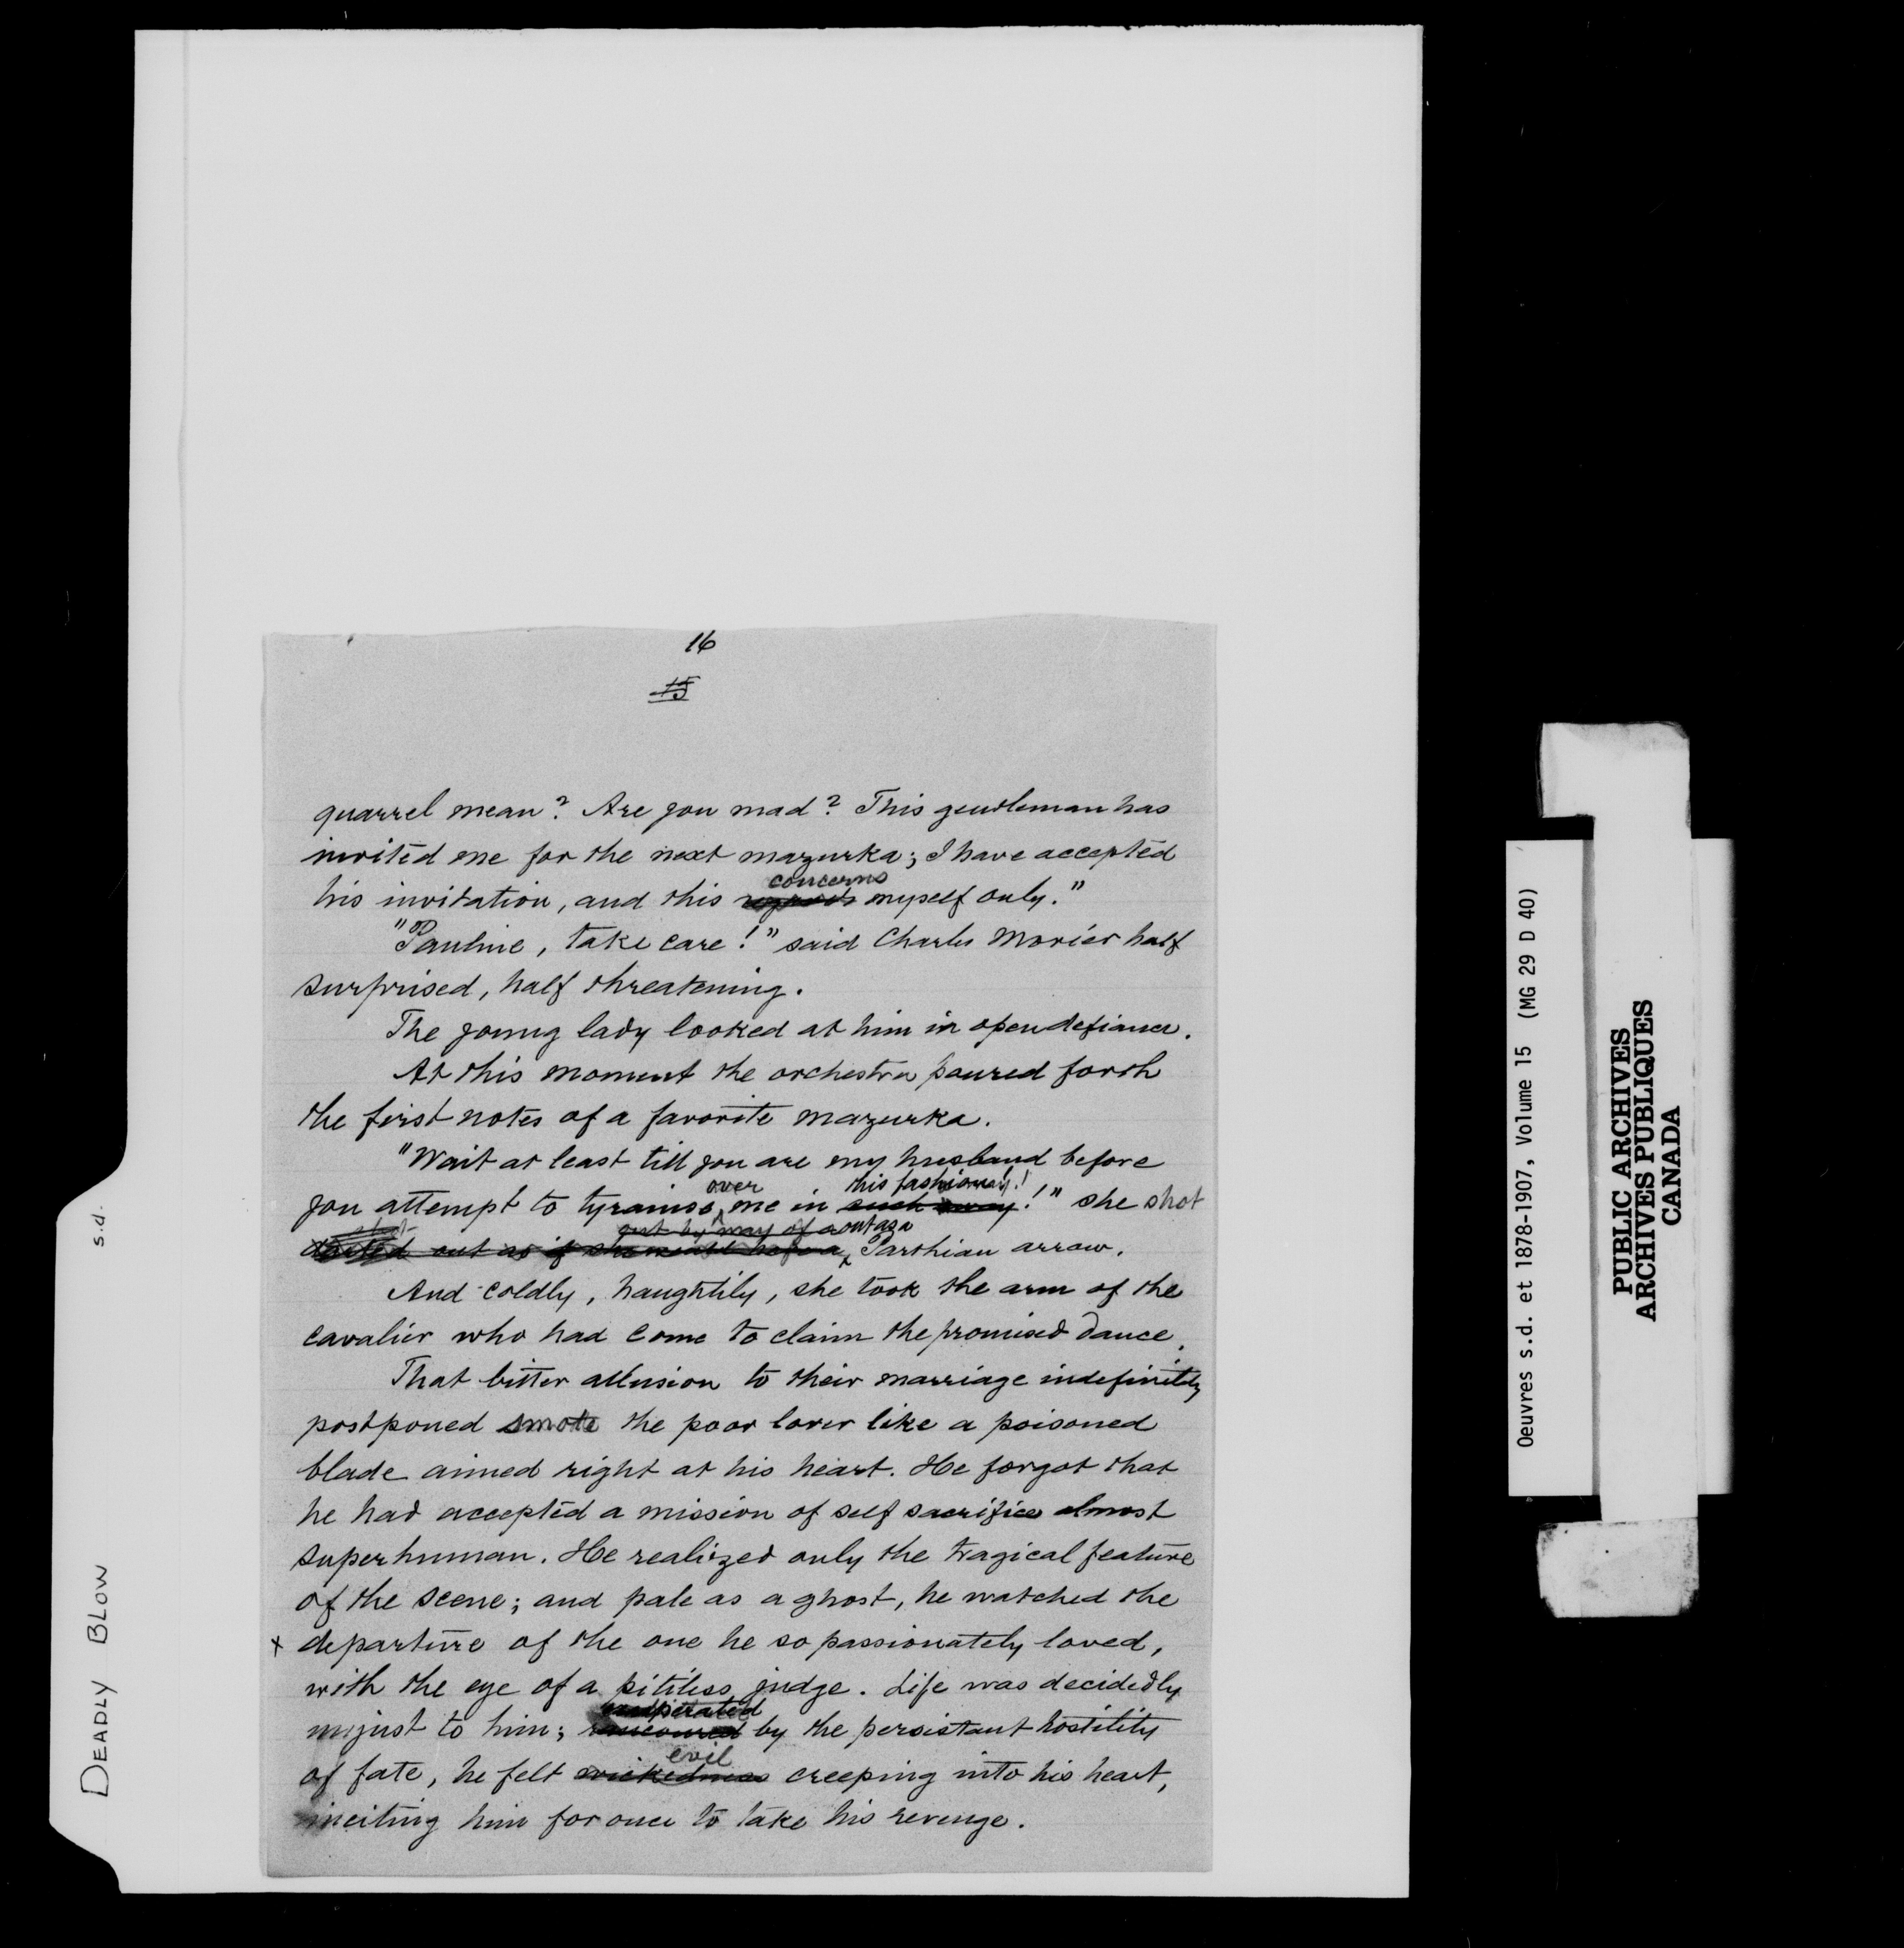 16
15
quarrel mean? Are you mad? This gentleman has
invited me for the next mazurka; I have accepted
concerns
his invitation, and this regards myself only."
"Pauline, take care!" said Charles Morier half
surprised, half threatening.
The young lady looked at him in open defiance.
At this moment the orchestra poured forth
the first notes of a favorite mazurka.
"Wait at least till you are my husband before
over this fashion
you attempt to tyranise me in such away!" she shot
shot out by way of a out as a
darted out as if she would have a Parthian arrow.
And coldly, haughtily, she took the arm of the
cavalier who had come to claim the promised dance.
That bitter allusion to their marriage indefinitely
postponed smote the poor lover like a poisoned
blade aimed right at his heart. He forgot that
he had accepted a mission of self sacrifice almost
superhuman. He realized only the tragical feature
of the scene; and pale as a ghost, he watched the
x departure of the one he so passionately loved,
with the eye of a pitiless judge. Life was decidedly
exasperated
unjust to him; by the persistant hostility
evil
of fate, he felt wickedness creeping into his heart,
inciting him for once to take his revenge.
DEADLY BLOW s.d.
Oeuvres s.d. et 1878-1907, Volume 15 (MG 29 D 40)
PUBLIC ARCHIVES
ARCHIVES PUBLIQUES
CANADA